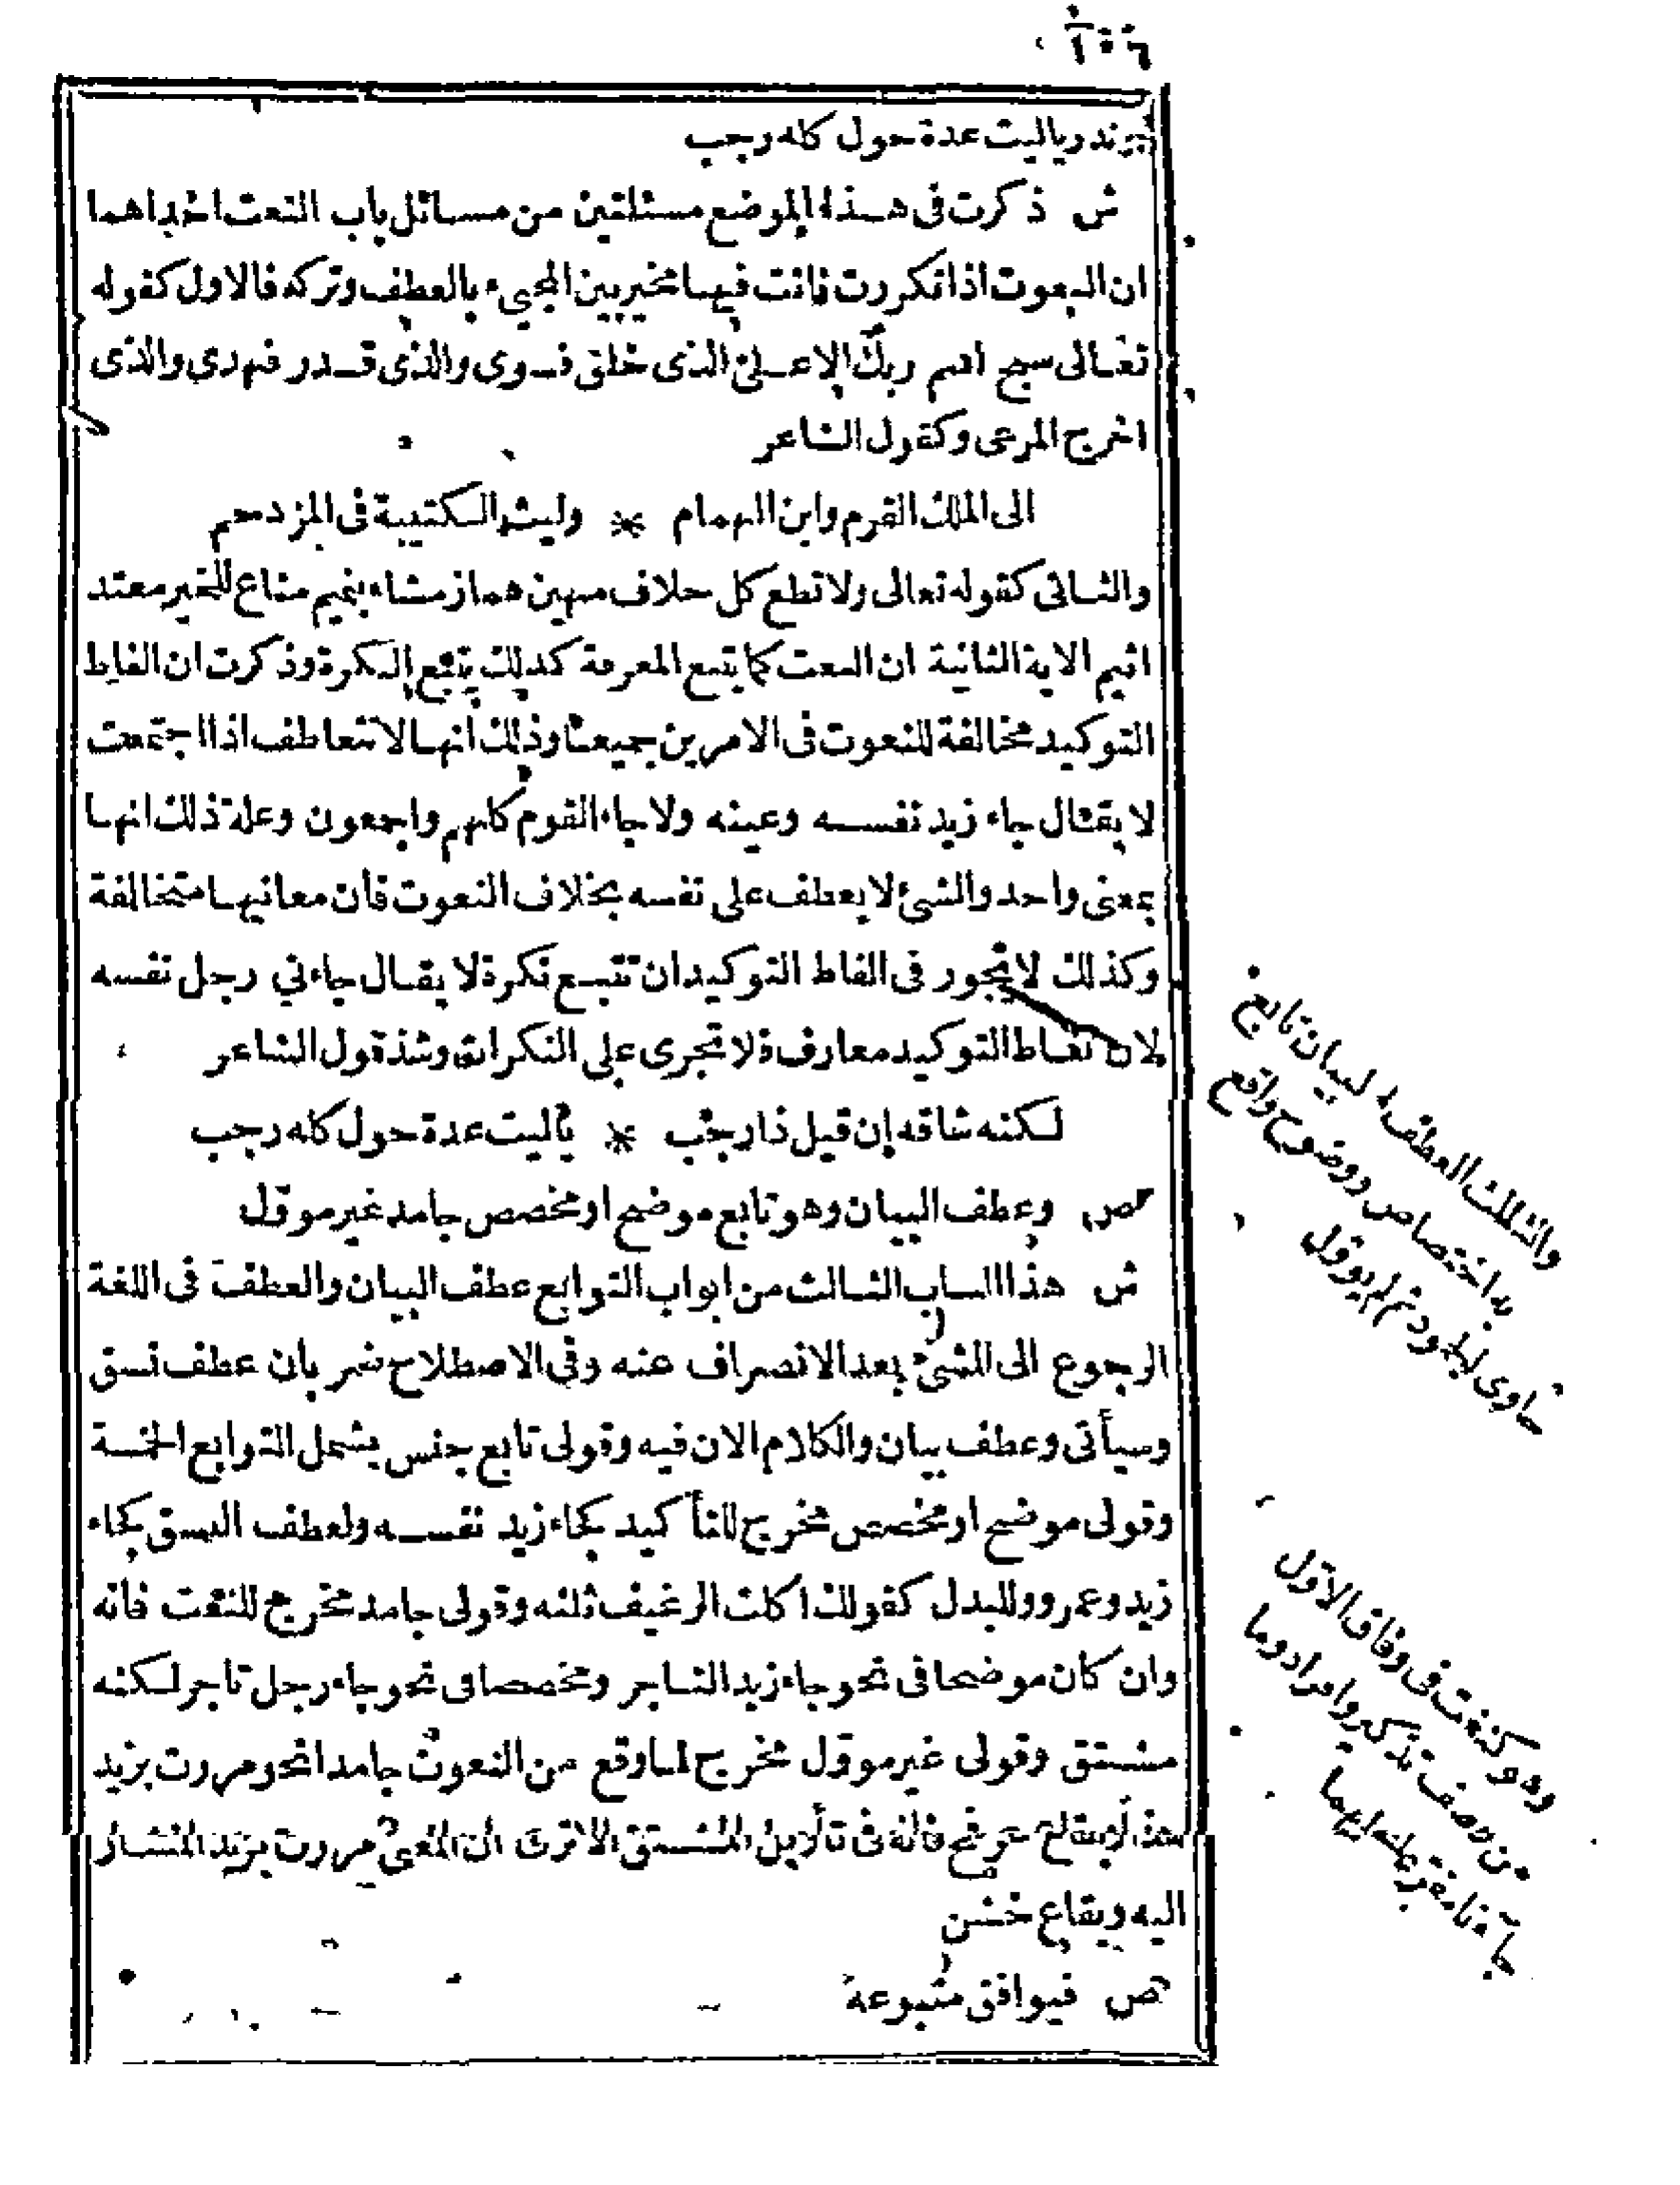 ١٠٦
وندر ياليت عدة حول كله رجب
ش ذكرت فى هذا الموضع مسئلتين من مسائل باب النعت احداهما
ان النعوت اذا تكررت فانت فيها مخير بين المجىء بالعطف وتركه فالاول كقوله
تعالى سبح اسم ربك الاعلى الذى خلق فسوى والذى قدر فهدى والذى
اخرج المرعى وكقول الشاعر
الى الملك القرم وابن الهمام * وليث الكتيبة فى المزدحم
والثانى كقوله تعالى ولا تطع كل حلاف مهين هماز مشاء بنميم مناع للخير معتد
اثيم الاية الثانية ان النعت كما يتبع المعرفة كذلك يتبع النكرة وذكرت ان الفاظ
التوكيد مخالفة للنعوت فى الامرين جميعا وذلك انها لا تتعاطف اذا اجتمعت
لا يقال جاء زيد نفسه وعينه ولا جاء القوم كلهم واجمعون وعلة ذلك انها
بمعنى واحد والشئ لا يعطف على نفسه بخلاف النعوت فان معانيها متخالفة
وكذلك لا يجوز فى الفاظ التوكيد ان تتبع نكرة لا يقال جاءنى رجل نفسه
لان الفاظ التوكيد معارف فلا تجرى على النكرات وشذ قول الشاعر
لكنه شاقه ان قيل ذا رجب * ياليت عدة حول كله رجب
ص وعطف البيان وهو تابع موضح او مخصص جامد غير موقل
ش هذا الباب الثالث من ابواب التوابع عطف البيان والعطف فى اللغة
الرجوع الى الشئ بعد الانصراف عنه وفى الاصطلاح ضربان عطف نسق
وسيأتى وعطف بيان والكلام الان فيه وقولى تابع جنس يشمل التوابع الخمسة
وقولى موضح او مخصص مخرج للتأكيد كجاء زيد نفسه ولعطف النسق كجاء
زيد وعمرو وللبدل كقولك اكلت الرغيف ثلثه وقولى جامد مخرج للنعت فانه
وان كان موضحا فى نحو جاء زيد التاجر ومخصصا فى نحو جاء رجل تاجر لكنه
مشتق وقولى غير موقل مخرج لما وقع من النعوت جامدا نحو مررت بزيد
هذا وبقاع عرفج فانه فى تأويل المشتق الا ترى ان المعنى مررت بزيد المشار
اليه وبقاع خشن
ص فيوافق متبوعه
والثالث العطف البيان تابع
به اختصاص ووضوح واقع
حاوى لجمود ثم لم يوقل
وهو كنعت فى وفاق الاول
من وصف تذكير وافراد وما